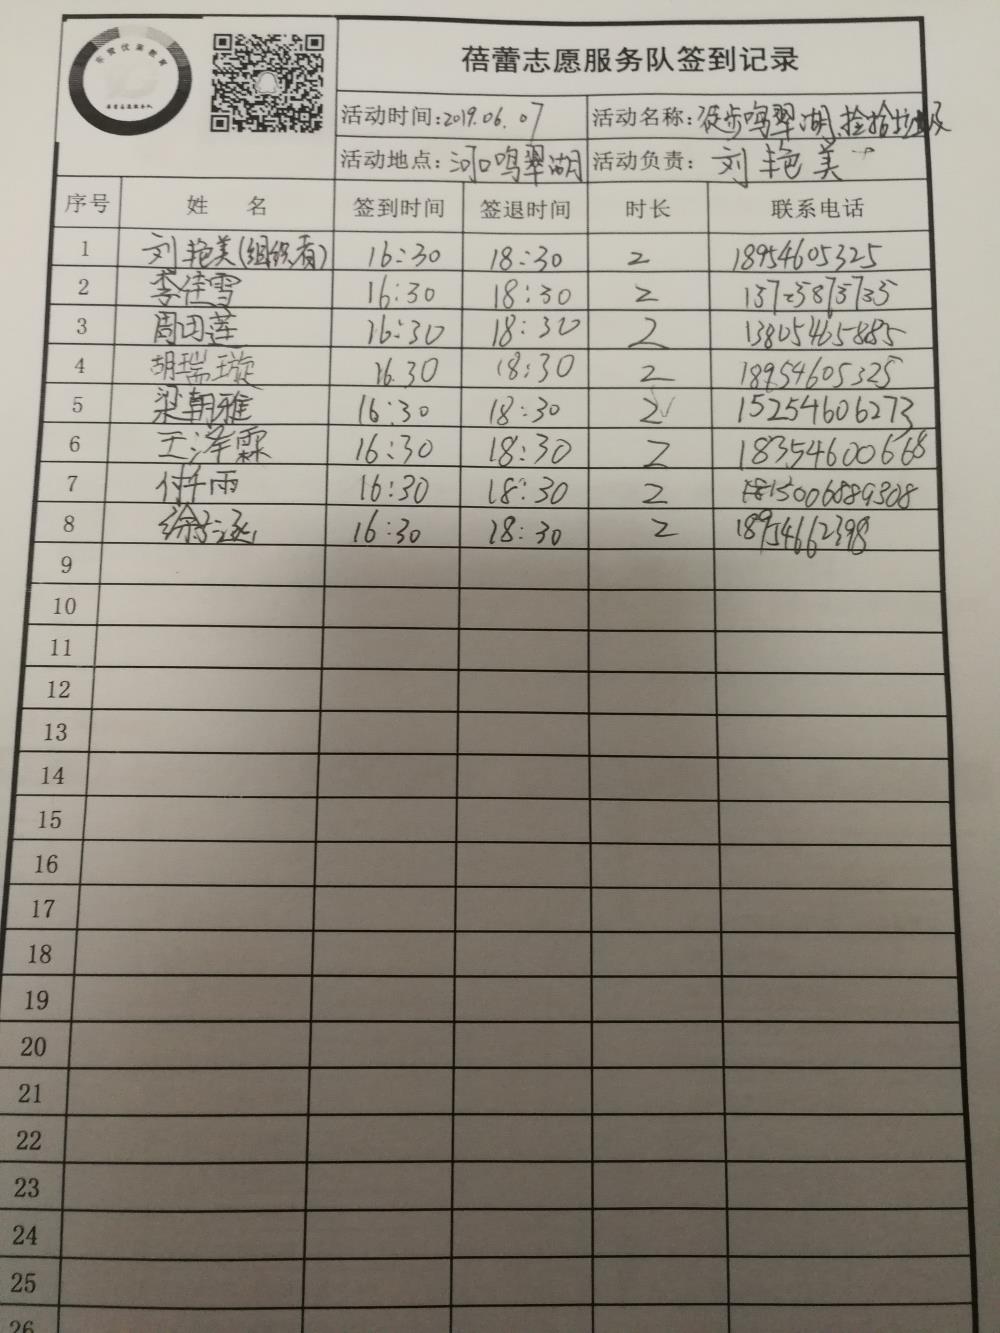 东营优来教育
蓓蕾志愿服务队签到记录
活动时间:2019.06.07 活动名称:徒步鸣翠湖,捡拾垃圾
活动地点:河口鸣翠湖 活动负责:刘艳美
序号 姓 名 签到时间 签退时间 时长 联系电话
1 刘艳美(组织者) 16:30 18:30 2 18954605325
2 李佳雪 16:30 18:30 2
3 周田莲 16:30 18:30 2 13805465885
4 胡瑞璇 16.30 18:30 2 18954605325
5 梁朝雅 16:30 18:30 2 15254606273
6 王泽霖 16:30 18:30 2 18354600668
7 付千雨 16:30 18:30 2
8 16:30 18:30 2 18954662398
9
10
11
12
13
14
15
16
17
18
19
20
21
22
23
24
25
26